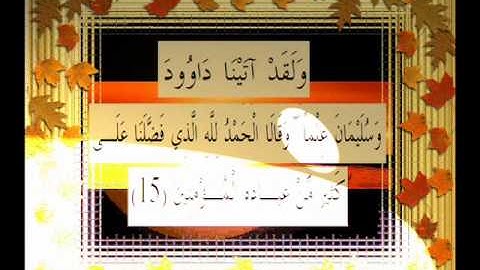 وَلَقَدْ آتَيْنَا دَاوُودَ
وَسُلَيْمَانَ عِلْمًا وَقَالَا الْحَمْدُ لِلَّهِ الَّذِي فَضَّلَنَا عَلَى
كَثِيرٍ مِّنْ عِبَادِهِ الْمُؤْمِنِينَ (15)